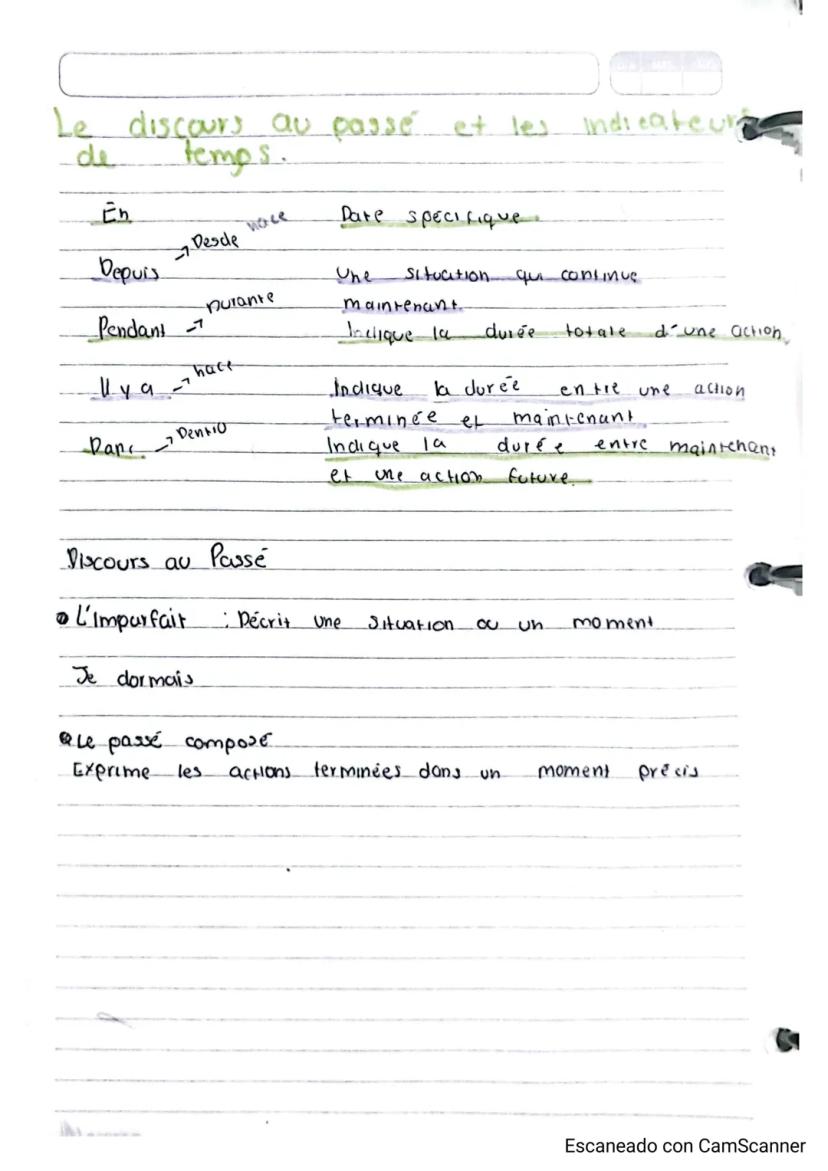 Le discours au passé et les indicateurs
de temps.
En Date spécifique
Depuis → Desde hace Une situation qui continue
maintenant.
Pendant → Durante Indique la durée totale d'une action.
Il y a → hace Indique la durée entre une action
terminée et maintenant
Dans → Dentro Indique la durée entre maintenant
et une action future.
Discours au Passé
L'Imparfait : Décrit une situation ou un moment
Je dormais
Le passé composé
Exprime les actions terminées dans un moment précis
Escaneado con CamScanner